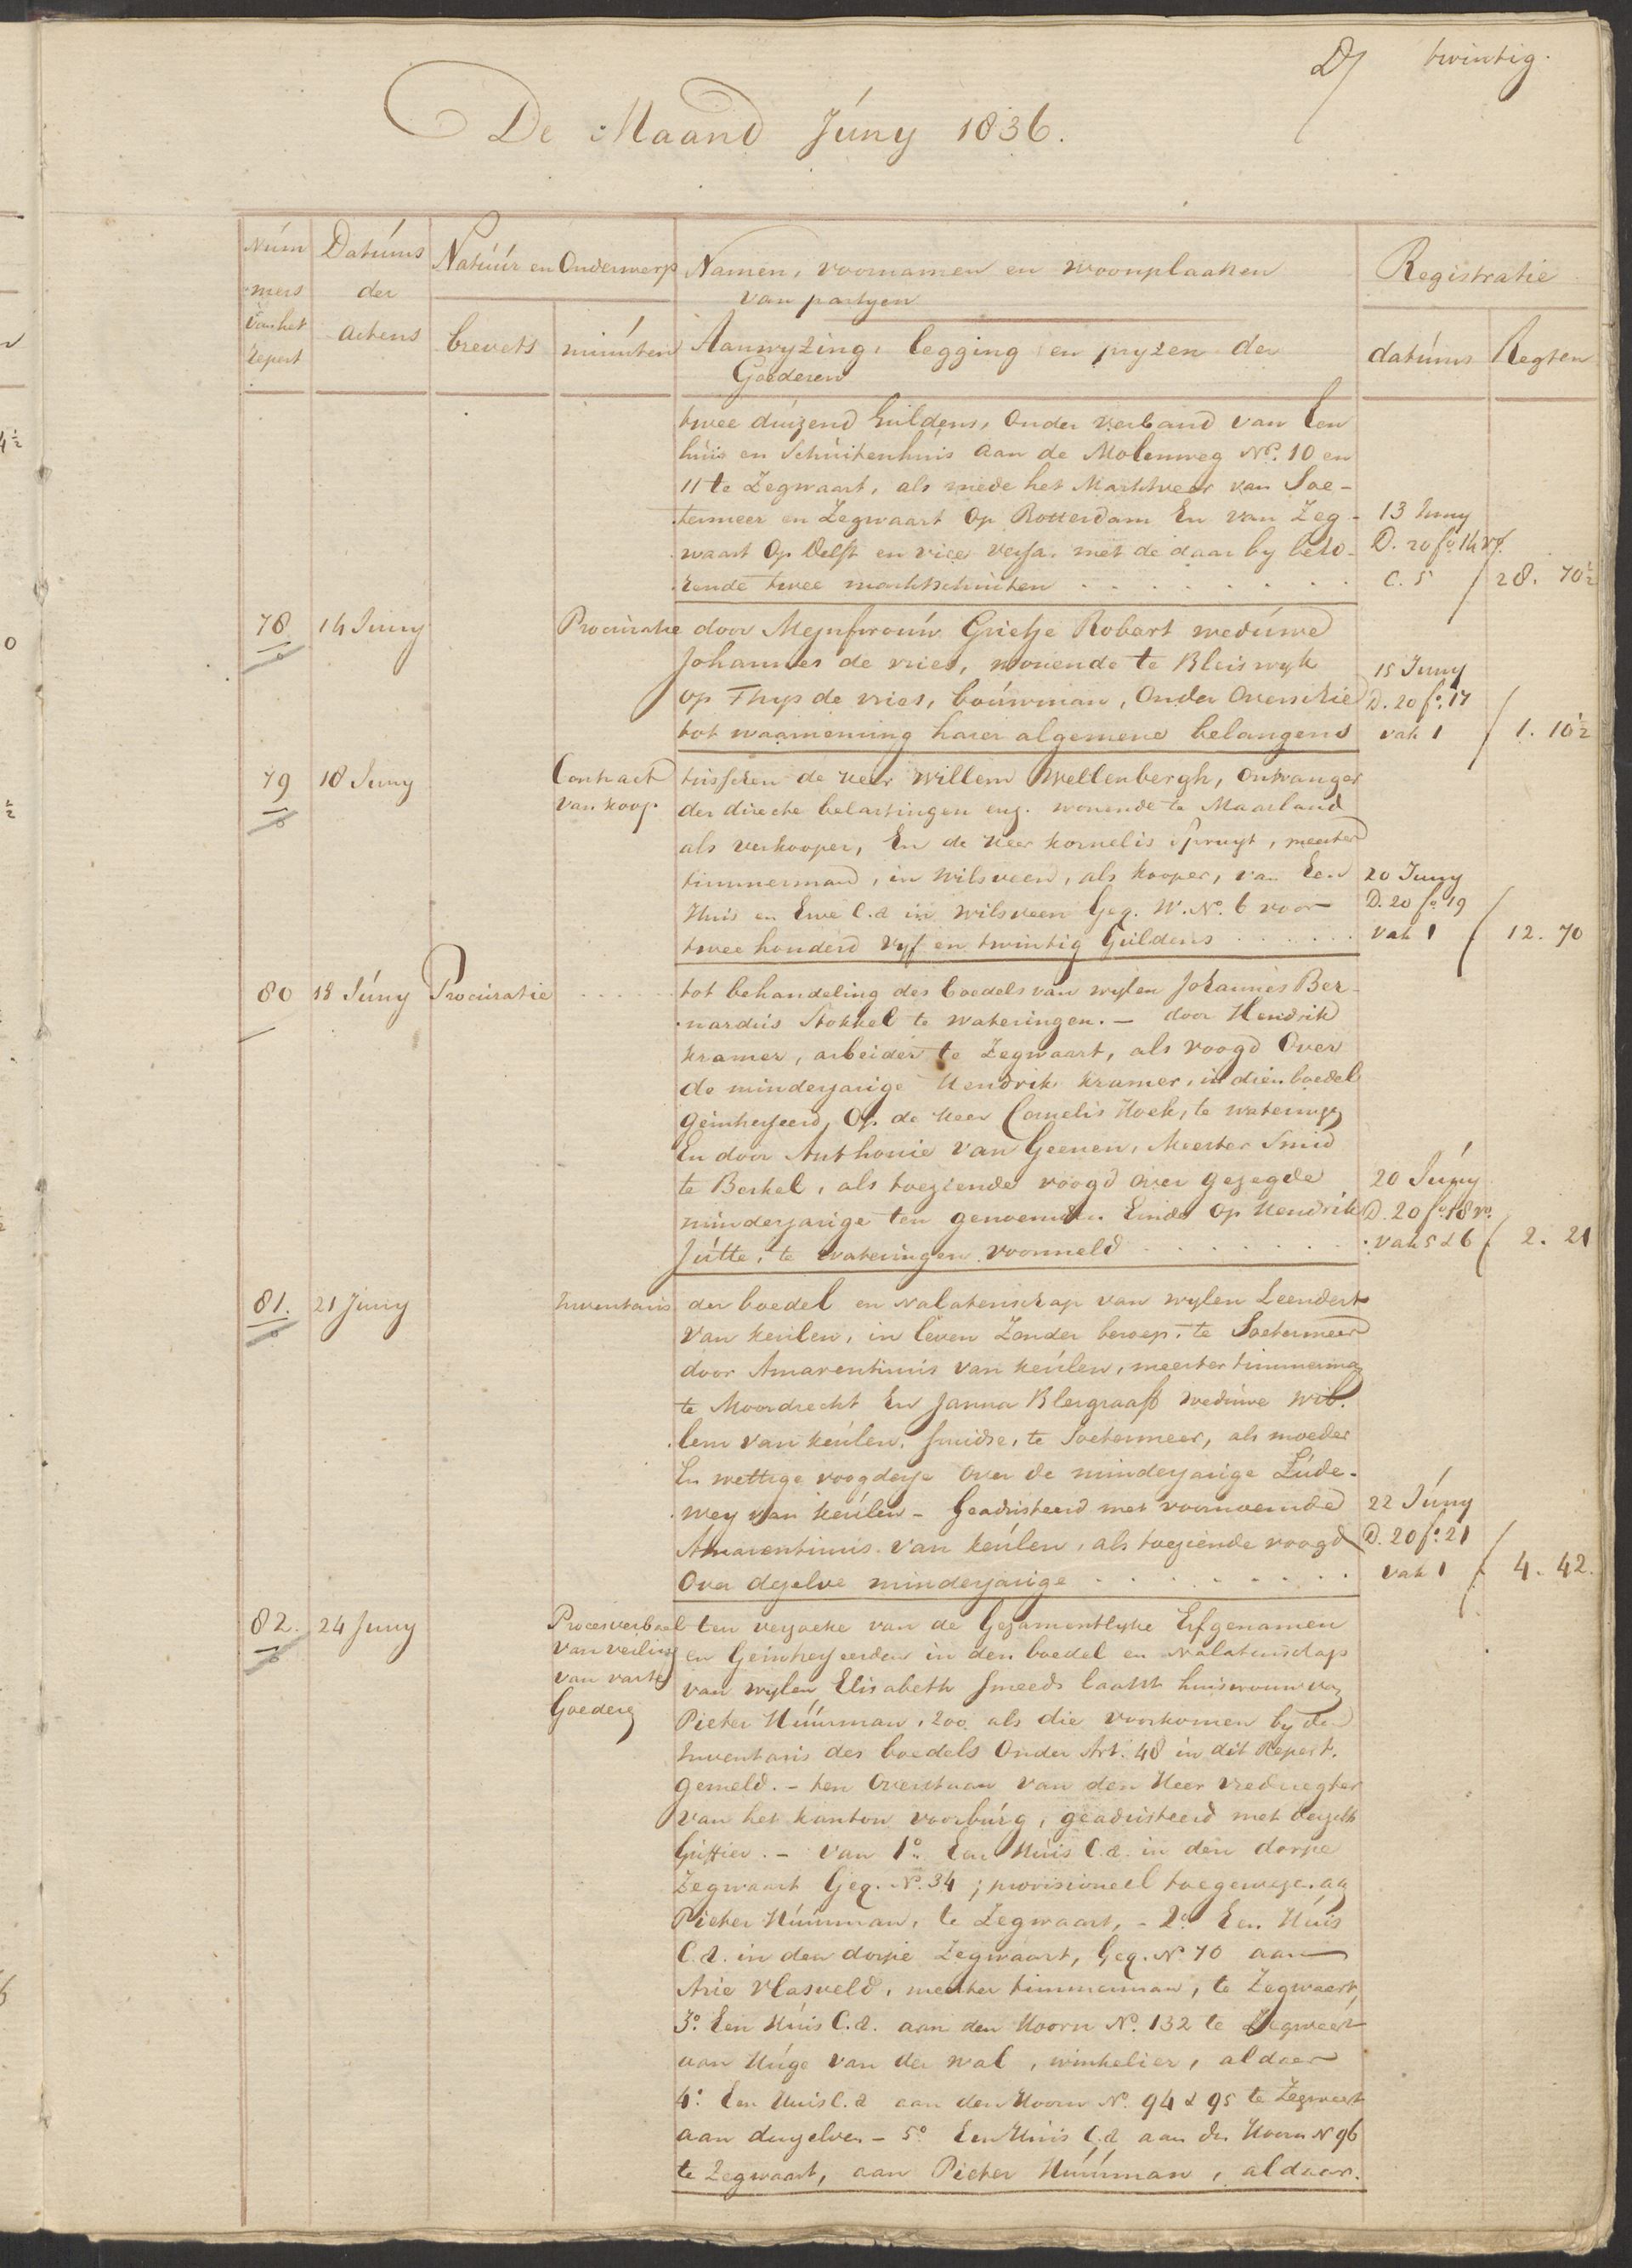 twintig.
De Maand Júny 1836.
Núm
mers
van het
Repert
Datúms
der
actens
Natúúr en Onderwerp
brevets
minúten
Namen, voornamen en woonplaatsen
van partyen
Aanwyzing, legging en pryzen der
Goederen
Registratie
datúms
Regten
twee duizend Guldens, Onder verband van Een
húis en Schúitenhuis aan de Molenweg No. 10 en
11 te Zegwaart, als mede het Marktveer van Soe-
termeer en Zegwaart Op Rotterdam En van Zeg-
waart Op Delft en vice versa, met de daar by beho-
rende twee marktschuiten
13 Juny
D. 20 fo. 14 vo.
C. 5
28. 70½
78
14 Juny
Procúratie
door Mejufvrouw Grietje Robart wedúwe
Johannes de vries, wonende te Bleiswyk
op Thys de vries, boúwman, Onder Overschie
tot waarneming harer algemene belangens
15 Juny
D. 20 fo. 17
vak 1
1. 10½
79
18 Juny
Contract
van koop
tússchen de Heer Willem Wellenbergh, Ontvanger
der directe belastingen enz. wonende te Maasland
als verkooper, En de Heer Kornelis Spruyt, meester
timmerman, in Wilsveen, als kooper, van Een
Huis en Erve C.a in Wilsveen Geq. W. No. 6 voor
twee honderd vyf en twintig Gúldens
20 Juny
D. 20 fo. 19
vak 1
12. 70
80
18 Júny
Procúratie
tot behandeling des boedels van wylen Johannes Ber-
nardús Stokkel te Wateringen. - door Hendrik
Kramer, arbeider te Zegwaart, als voogd Over
de minderjarige Hendrik Kramer, in dien boedel
geinteresseerd, Op de Heer Cornelis Hoek, te wateringen
En door Anthonie van Geenen, Meester Smid
te Berkel, als toeziende voogd over gezegde
minderjarige ten genoemden Einde Op Hendrik
Jútte, te wateringen voormeld
20 Júny
D. 20 fo. 18 vo.
vak 5 & 6
2. 21
81.
21 Juny
Inventaris
der boedel en nalatenschap van wylen Leendert
van Keulen, in leven Zonder beroep, te Soetermeer
door Amarentinus van Keúlen, meester timmerman
te Moordrecht En Janna Blergraaft wedúwe Wil-
lem van Keúlen, smidse, te Soetermeer, als moeder
En wettige voogdesse Over de minderjarige Lúde-
wey van Keúlen - Geadsisteerd met voornoemde
Amarentinus van Keúlen, als toeziende voogd
Over dezelve minderjarige
22 Júny
D. 20 fo. 21
vak 1
4. 42.
82.
24 Juny
Procesverbaal
van veiling
van vaste
Goederen
ten verzoeke van de Gezamentlyke Erfgenamen
en Geinteresseerden in den boedel en Nalatenschap
van wylen Elisabeth Smeeds laatst huisvrouw van
Pieter Húúrman, zoo als die voorkomen by den
Inventaris des boedels Onder Art. 48 in dit Repert.
gemeld. - ten Overstaan van den Heer vrederegter
van het kanton voorbúrg, geadsisteerd met deszelfs
Griffier. - Van 1o. Een Húis C.a. in den dorpe
Zegwaart Geq. No. 34; provisioneel toegeweze. aan
Pieter Húúrman, te Zegwaart, - 2o. Een Húis
C.a. in den dorpe Zegwaart, Geq. No 70 aan
Arie Vlasveld, meester timmerman, te Zegwaart,
3o. Een Húis C.a. aan den Hoorn No. 132 te Zegwaart
aan Húge van der Wal, winkelier, aldaar
4o. Een Huis C.a aan den Hoorn No. 94 & 95 te Zegwaart
aan denzelven - 5o Een Húis C.a aan den Hoorn N 96
te Zegwaart, aan Pieter Húúrman, aldaar.